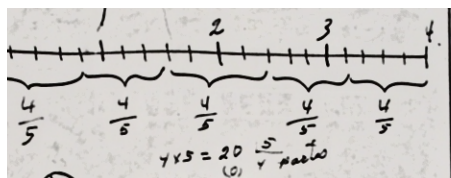 1 2 3 4.
4/5 4/5 4/5 4/5 4/5
4 x 5 = 20 5/4 parts
(0)